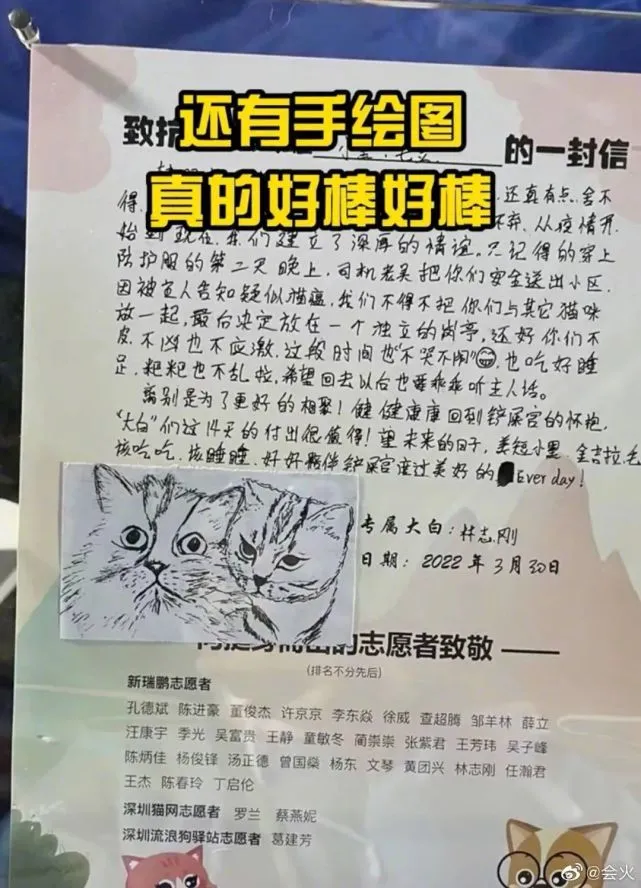 还有手绘图
真的好棒好棒
致抗
的一封信
还真有点舍不
得
不弃.从疫情开
始到现在,我们建立了深厚的情谊。只记得的穿上
防护服的第二天晚上,司机老吴把你们安全送出小区,
因被主人告知疑似猫瘟,我们不得不把你们与其它猫咪
放一起,最后决定放在一个独立的岗亭,还好你们不
皮.不凶也不应激.这段时间也"不哭不闹"😁,也吃好睡
足,粑粑也不乱拉,希望回去以后也要乖乖听主人话。
离别是为了更好的相聚!健健康康回到铲屎官的怀抱,
"大白"们这14天的付出很值得!望未来的日子,美短小黑、金吉拉
该吃吃,该睡睡,好好陪伴铲屎官度过美好的Everday!
专属大白:林志刚
日期:2022年3月30日
的志愿者致敬
(排名不分先后)
新瑞鹏志愿者
孔德斌 陈进豪 董俊杰 许京京 李东焱 徐威 查超腾 邹羊林 薛立
汪康宇 季光 吴富贵 王静 童敏冬 蔺崇崇 张紫君 王芳玮 吴子峰
陈炳佳 杨俊锋 汤正德 曾国燊 杨东 文琴 黄团兴 林志刚 任瀚君
王杰 陈春玲 丁启伦
深圳猫网志愿者 罗兰 蔡燕妮
深圳流浪狗驿站志愿者 葛建芳
@会火